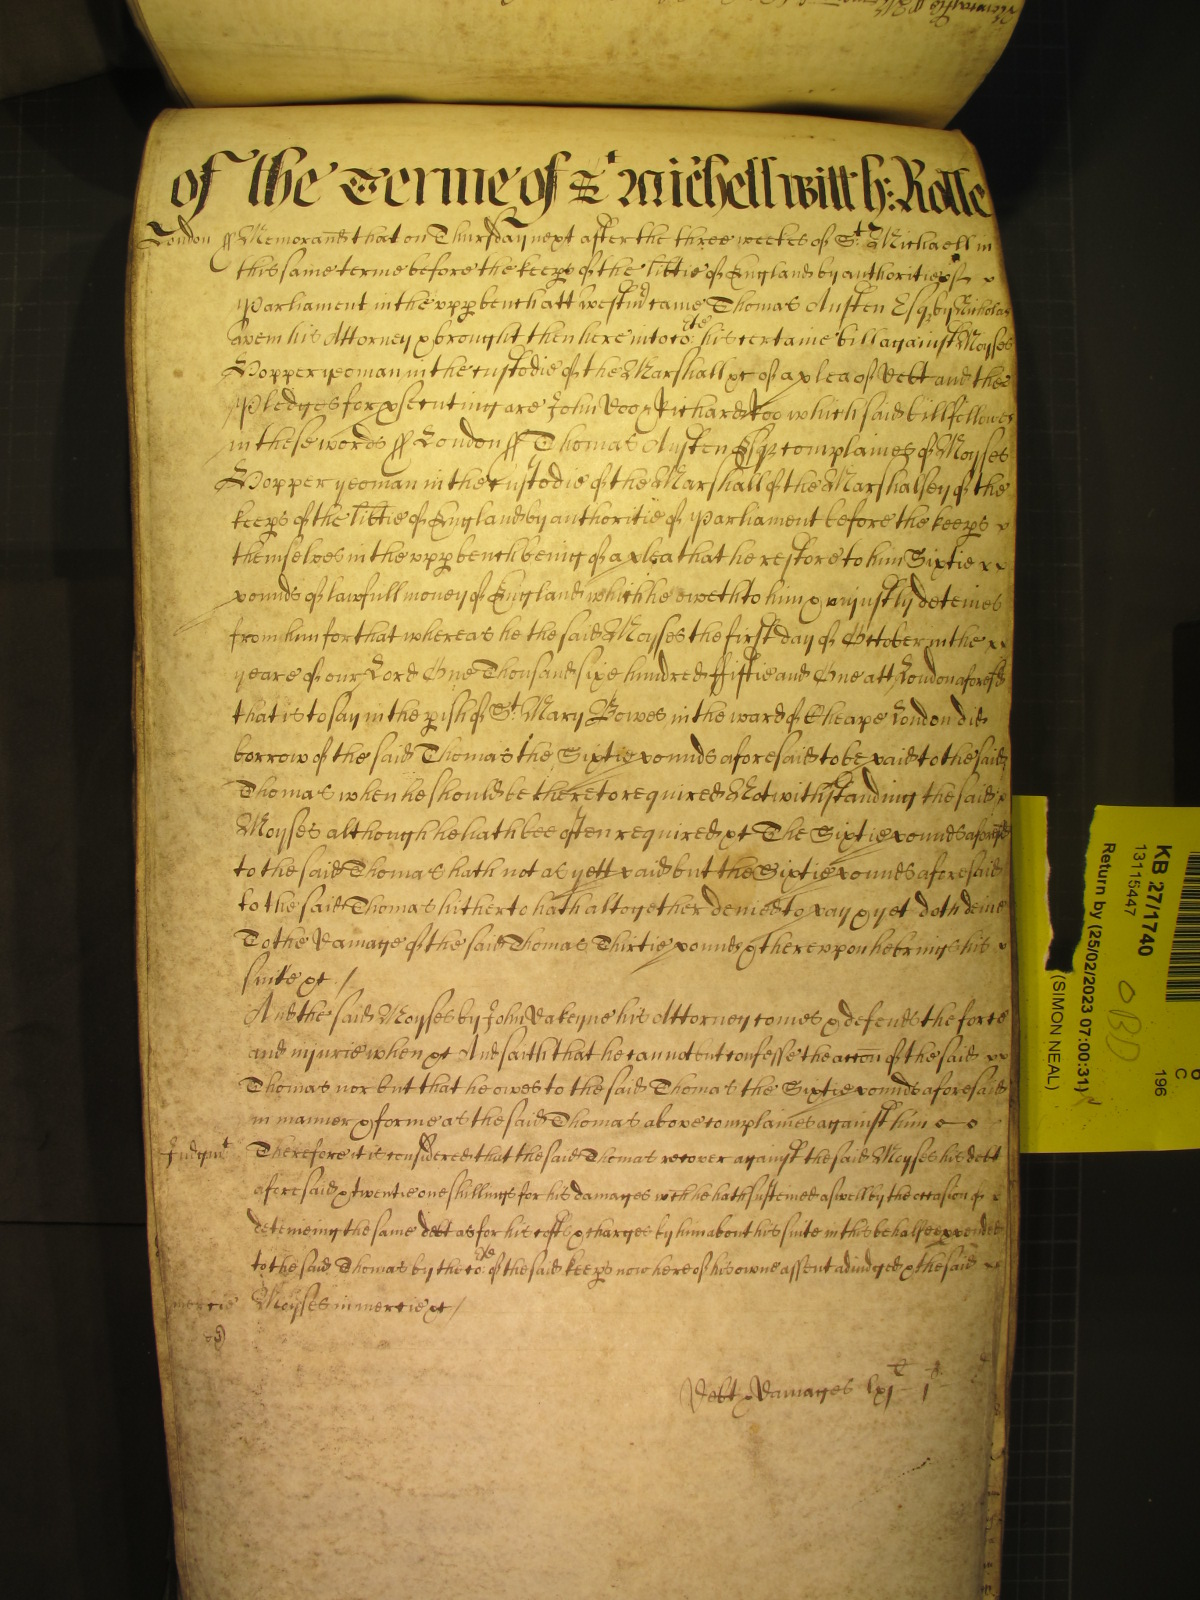 of the Terme of St Michell witth: Rolle
London ss Memorand that on Thursday next after the three weekes of St. Michaell in
this same terme before the keeps of the libtie of England by authoritie of
Parliament in the upp bench att Westm came Thomas Austen Esq by Nicholas
his Attorney & brought then here into co:te his certaine bill against Moyses
Hopper yeoman in the custodie of the Marshall &c of a plea of Debt and the
Pledges for psecuting are John Doo & Richard Roo which said bill followes
in these words ss London ss Thomas Austen Esqr complaines of Moyses
Hopper yeoman in the custodie of the Marshall of the Marshalsey of the
keeps of the libtie of England by authoritie of Parliament before the keeps
themselves in the upp bench being of a plea that he restore to him Sixtie
pounds of lawfull money of England which he oweth to him & unjustly deteines
from him for that whereas he the said Moyses the first day of October in the
yeare of our Lord One Thousand sixe hundred ffiftie and One att London aforesd
that is to say in the pish of St. Mary Bowes in the ward of Cheape London did
borrow of the said Thomas the Sixtie pounds aforesaid to be paid to the said
Thomas when he should be thereto required Notwithstanding the said
Moyses although he hath bee often required &c The Sixtie pounds aforesd
to the said Thomas hath not as yett paid but the Sixtie pounds aforesaid
to the said Thomas hitherto hath altogether denied to pay & yet doth denie
To the Damage of the said Thomas Thirtie pounds & thereupon he brings his
suite &c /
And the said Moyses by John Dakeyne his Attorney comes & defends the force
and injurie when &c And saith that he cannot but confesse the accon of the said
Thomas nor but that he owes to the said Thomas the Sixtie pounds aforesaid
in manner & forme as the said Thomas above complaines against him
Judgmt Therefore it is considered that the said Thomas recover against the said Moyses his debt
aforesaid & twentie one shillings for his damages wch he hath susteined aswell by the occasion of
deteineing the same debt as for his costs & charges by him about his suite in this behalfe expended
to the said Thomas by the co:te of the said keeps now here of his owne assent adiudged & the said
mercie Moyses in mercie &c /
Debt & Damages lxj l j s
KB 27/1740
13115447
Return by (25/02/2023 07:00:31)
(SIMON NEAL)
196
C
6